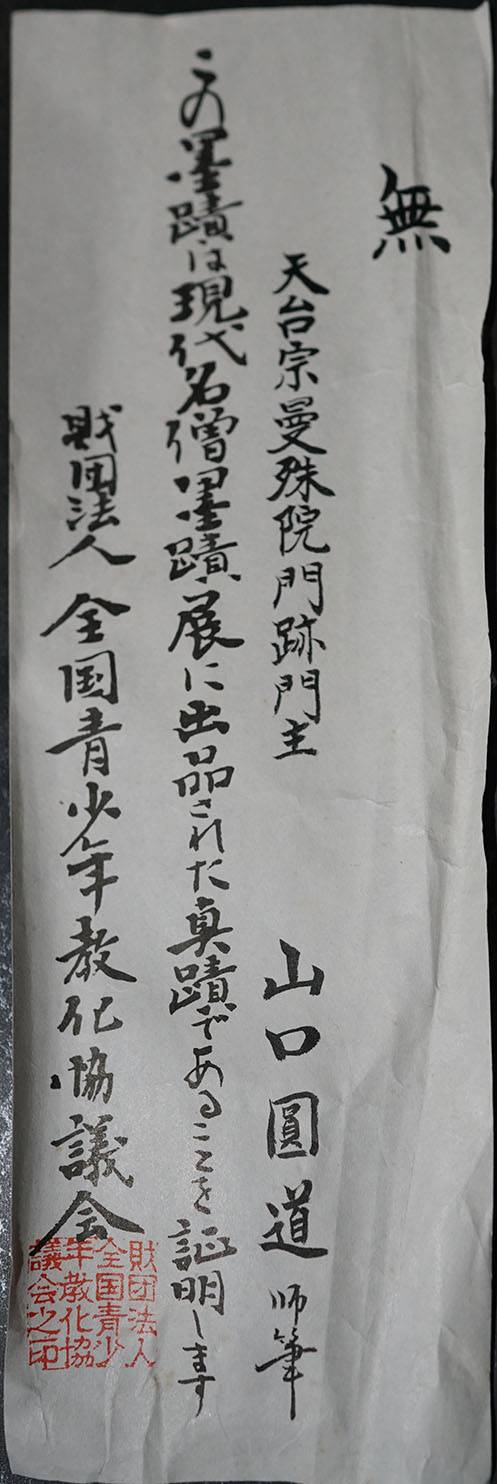 無
天台宗曼殊院門跡門主 山口圓道 師筆
この墨蹟は現代名僧墨蹟展に出品された真蹟であることを証明します
財団法人 全国青少年教化協議会
財団法人
全国青少
年教化協
議会之印